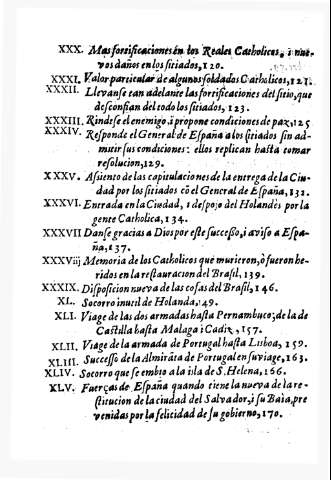 XXX. Mas fortificaciones en los Reales Catholicos, i nue-
vos daños en los sitiados, 120.
XXXI. Valor particular de algunos soldados Catholicos, 121.
XXXII. Llevanse tan adelante las fortificaciones del sitio, que
desconfian del todo los sitiados, 123.
XXXIII. Rindese el enemigo, i propone condiciones de paz, 125
XXXIV. Responde el General de España a los sitiados sin ad-
mitir sus condiciones: ellos replican hasta tomar
resolucion, 129.
XXXV. Asiento de las capitulaciones de la entrega de la Ciu-
dad por los sitiados cō el General de España, 132.
XXXVI. Entrada en la Ciudad, i despojo del Holandès por la
gente Catholica, 134.
XXXVII Danse gracias a Dios por este sucesso, i aviso a Espa-
ña, 137.
XXXViij Memoria de los Catholicos que murieron, ò fueron he-
ridos en la restauracion del Brasil, 139.
XXXIX. Disposicion nueva de las cosas del Brasil, 146.
XL. Socorro inutil de Holanda, 149.
XLI. Viage de las dos armadas hasta Pernambuco; de la de
Castilla hasta Malaga i Cadiz, 157.
XLII. Viage de la armada de Portugal hasta Lisboa, 159.
XLIII. Sucesso de la Almirāta de Portugal en su viage, 163.
XLIV. Socorro que se embio a la isla de S. Helena, 166.
XLV. Fuerças de España quando tiene la nueva de la re-
stitucion de la ciudad del Salvador, i su Baìa, pre
venidas por la felicidad de su gobierno, 170.